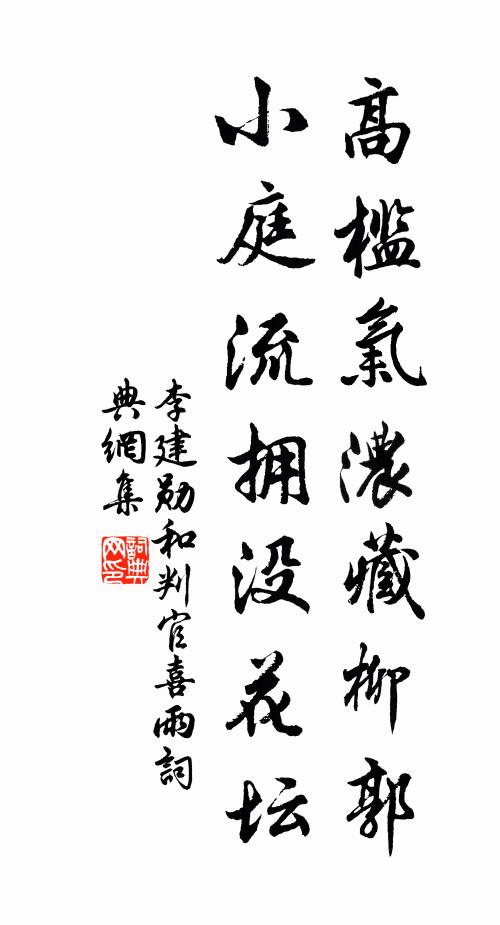 高檻氣濃藏柳郭
小庭流拥没花坛
李建勋和判官喜雨詞
典網集
詞典网印